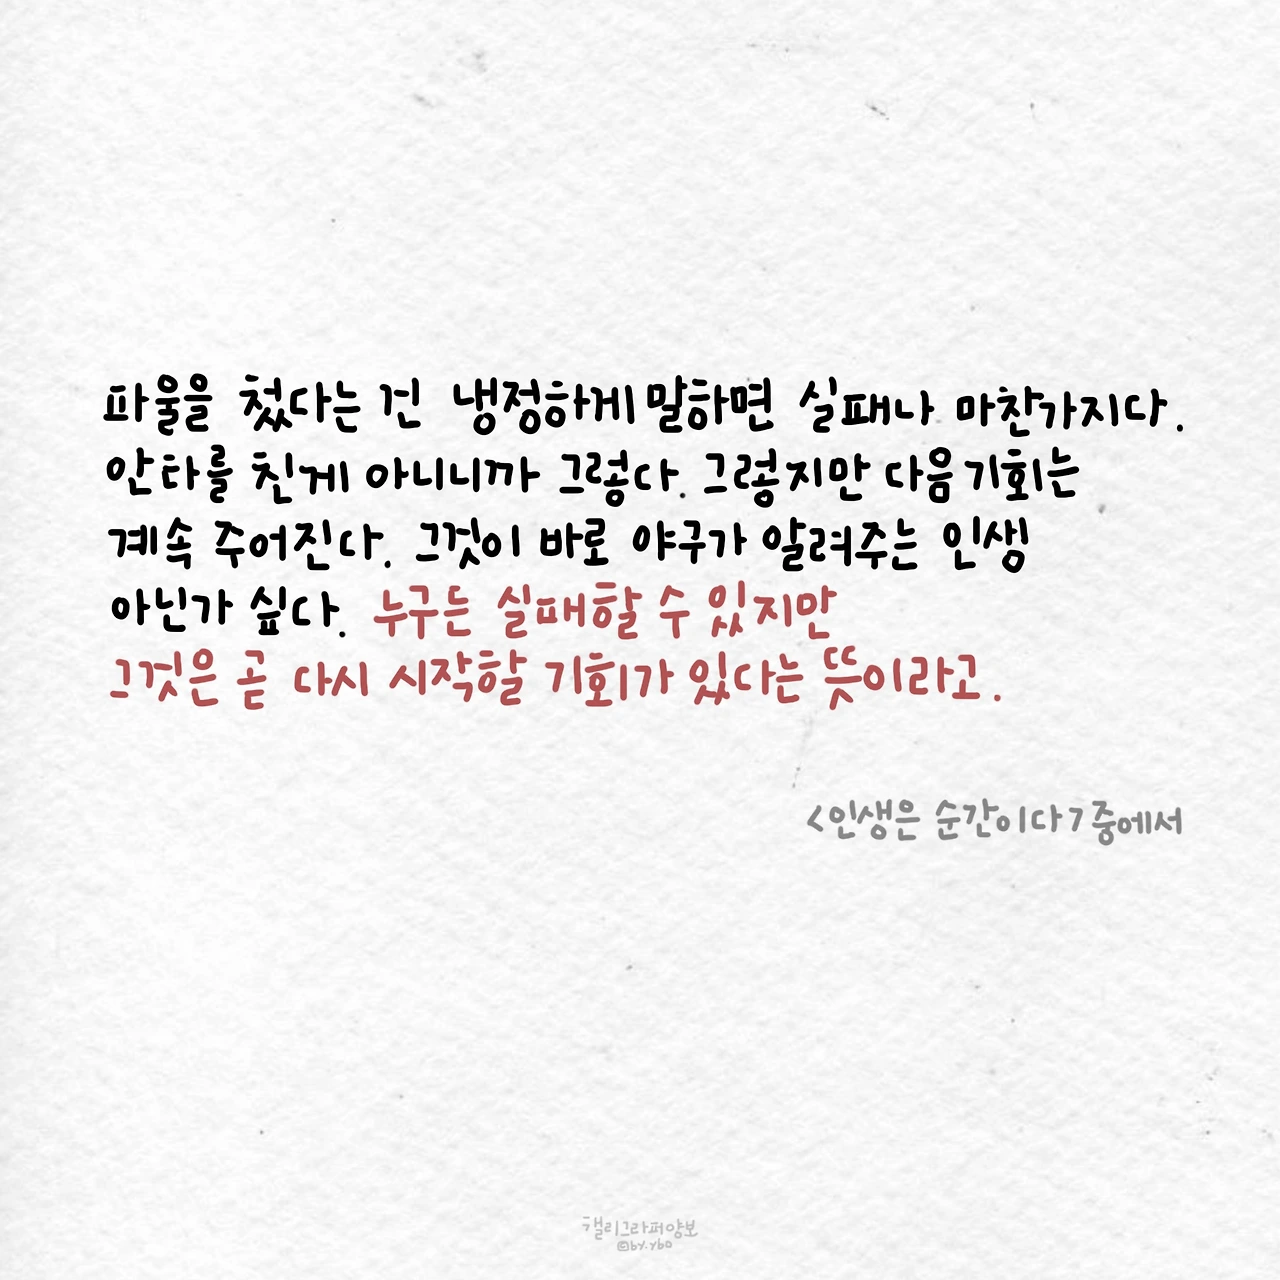 파울을 첬다는 건 냉정하게 말하면 실패나 마찬가지다.
안타를 친게 아니니까 그렇다. 그렇지만 다음기회는
계속 주어진다. 그것이 바로 야구가 알려주는 인생
아닌가 싶다. 누구든 실패할 수 있지만
그것은 곧 다시 시작할 기회가 있다는 뜻이라고.
<인생은 순간이다> 중에서
캘리그라퍼양보
©by.ybo